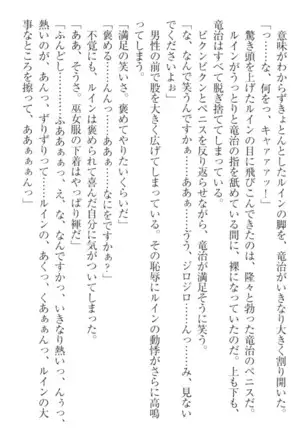 意味がわからずきょとんとしたルインの脚を、竜治がいきなり大きく割り開いた。
「っ……な、何をっ、キャァァアッ！」
驚き頭を上げたルインの目に飛びこんできたのは、隆々と勃った竜治のペニスだ。
ルインがうっとりと竜治の指を舐めている間に、裸になっていたのだ。上も下も、
竜治はすべて脱ぎ捨ててしまっている。
ビクンビクンとペニスを反り返らせながら、竜治が満足そうに笑う。
「な、なんで笑うんですかぁ……ああぁ……ぅう、ジロジロ……んっ……み、見ない
でくださいよぉ」
男性の前で股を大きく広げてしまっている。その恥辱にルインの動悸がさらに高鳴
ってしまう。
「満足の笑いさ。褒めてやりたいくらいだ」
「褒める……んっ……ああぁ……なにをですかぁ？」
不覚にも、ルインは褒められて喜んだ自分に気がついてしまった。
「ああ、そうさ。巫女服の下はやっぱり褌だ」
「ふんどし……ふああぁぁっ、え、な、なんですかっ、いきなり熱いっ、んぅっ、
熱いのが、あんっ、ずりずりって……ルインの、あくっ、くあぁぁんっ、ルインの大
事なところを擦って、ああぁぁぁんっ」